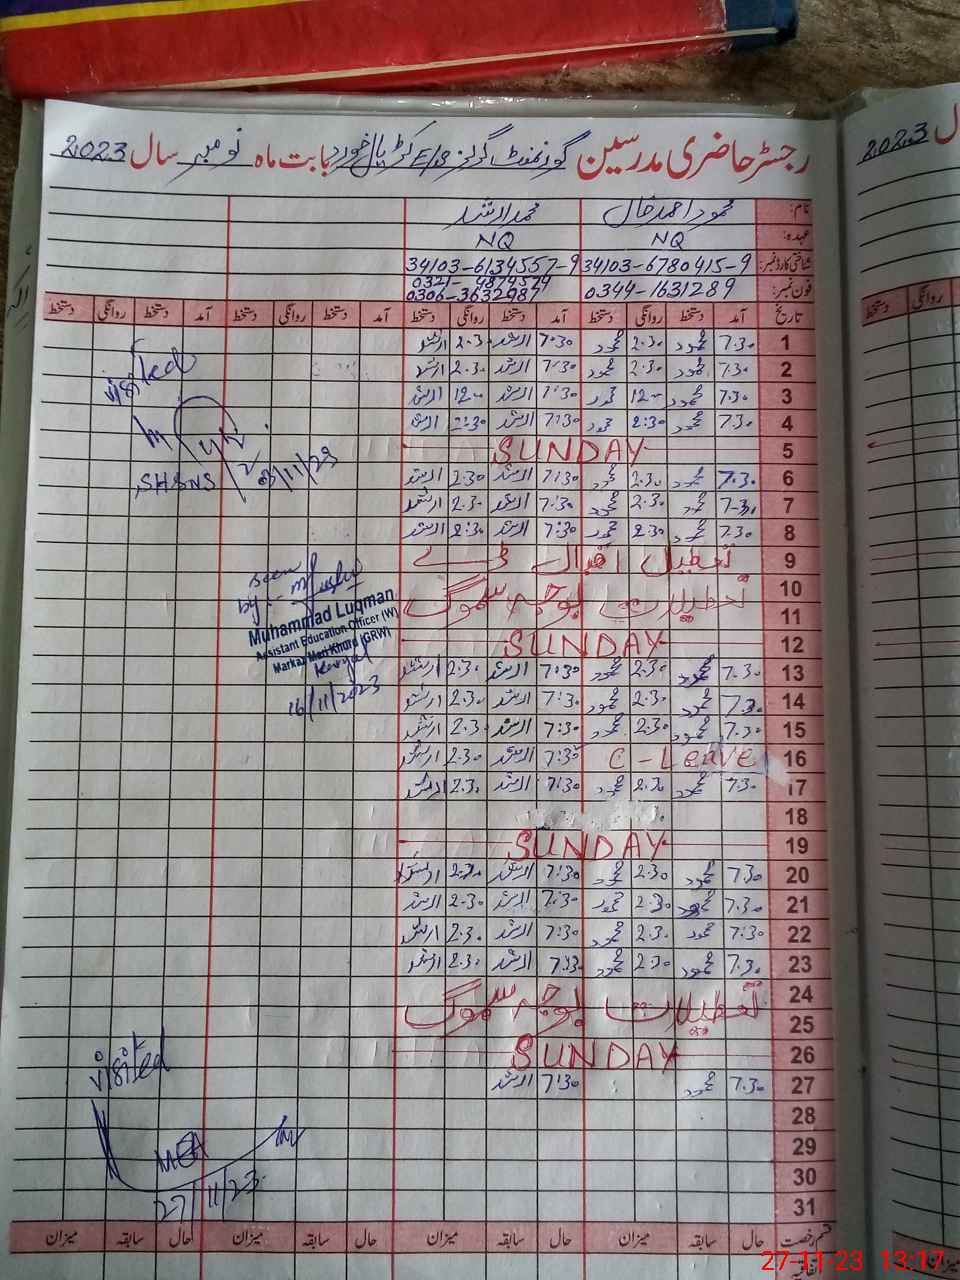 رجسٹر حاضری مدرسین گورنمنٹ گرلز E/S کڑیال خورد بابت ماہ نومبر سال 2023
نام: محمود احمد خاں محمد ارشد
عہدہ: NQ NQ
شناختی کارڈ نمبر: 34103-6780415-9 34103-6134557-9
فون نمبر: 0344-1631289 0306-3632987
تاریخ آمد دستخط روانگی دستخط آمد دستخط روانگی دستخط آمد دستخط روانگی دستخط آمد دستخط روانگی دستخط
1 7.30 محمود 2.30 محمود 7:30 ارشد 2.30 ارشد
2 7.30 محمود 2.30 محمود 7:30 ارشد 2.30 ارشد
3 7.30 محمود 12- محمود 7:30 ارشد 12- ارشد
4 7.30 محمود 2:30 محمود 7:30 ارشد 2:30 ارشد
5 SUNDAY
6 7.30 محمود 2.30 محمود 7:30 ارشد 2:30 ارشد
7 7.30 محمود 2.30 محمود 7:30 ارشد 2.30 ارشد
8 7.30 محمود 2:30 محمود 7:30 ارشد 2:30 ارشد
9 تعطیل اقبال ڈے
10
11 تعطیلات بوجہ سموگ
12 SUNDAY
13 7.30 محمود 2.30 محمود 7:30 ارشد 2.30 ارشد
14 7.30 محمود 2.30 محمود 7:30 ارشد 2.30 ارشد
15 7.30 محمود 2:30 محمود 7:30 ارشد 2.30 ارشد
16 C-Leave 7:30 ارشد 2.30 ارشد
17 7.30 محمود 2.30 محمود 7:30 ارشد 2.30 ارشد
18
19 SUNDAY
20 7.30 محمود 2.30 محمود 7:30 ارشد 2.30 ارشد
21 7.30 محمود 2.30 محمود 7:30 ارشد 2.30 ارشد
22 7:30 محمود 2.30 محمود 7:30 ارشد 2.30 ارشد
23 7.30 محمود 2:30 محمود 7:30 ارشد 2:30 ارشد
24
25 تعطیلات بوجہ سموگ
26 SUNDAY
27 7.30 محمود 7:30 ارشد
28
29
30
31
قسم رخصت حال سابقہ میزان حال سابقہ میزان حال سابقہ میزان حال سابقہ میزان
اتفاقیہ
visited
SHSNS
03/11/23
Seen
by:-
Muhammad Luqman
Assistant Education Officer (W)
Markaz Mari Khurd (GRW)
16/11/2023
visited
MEA
27/11/23
2023
روانگی دستخط
میزان
27-11-23 13:17